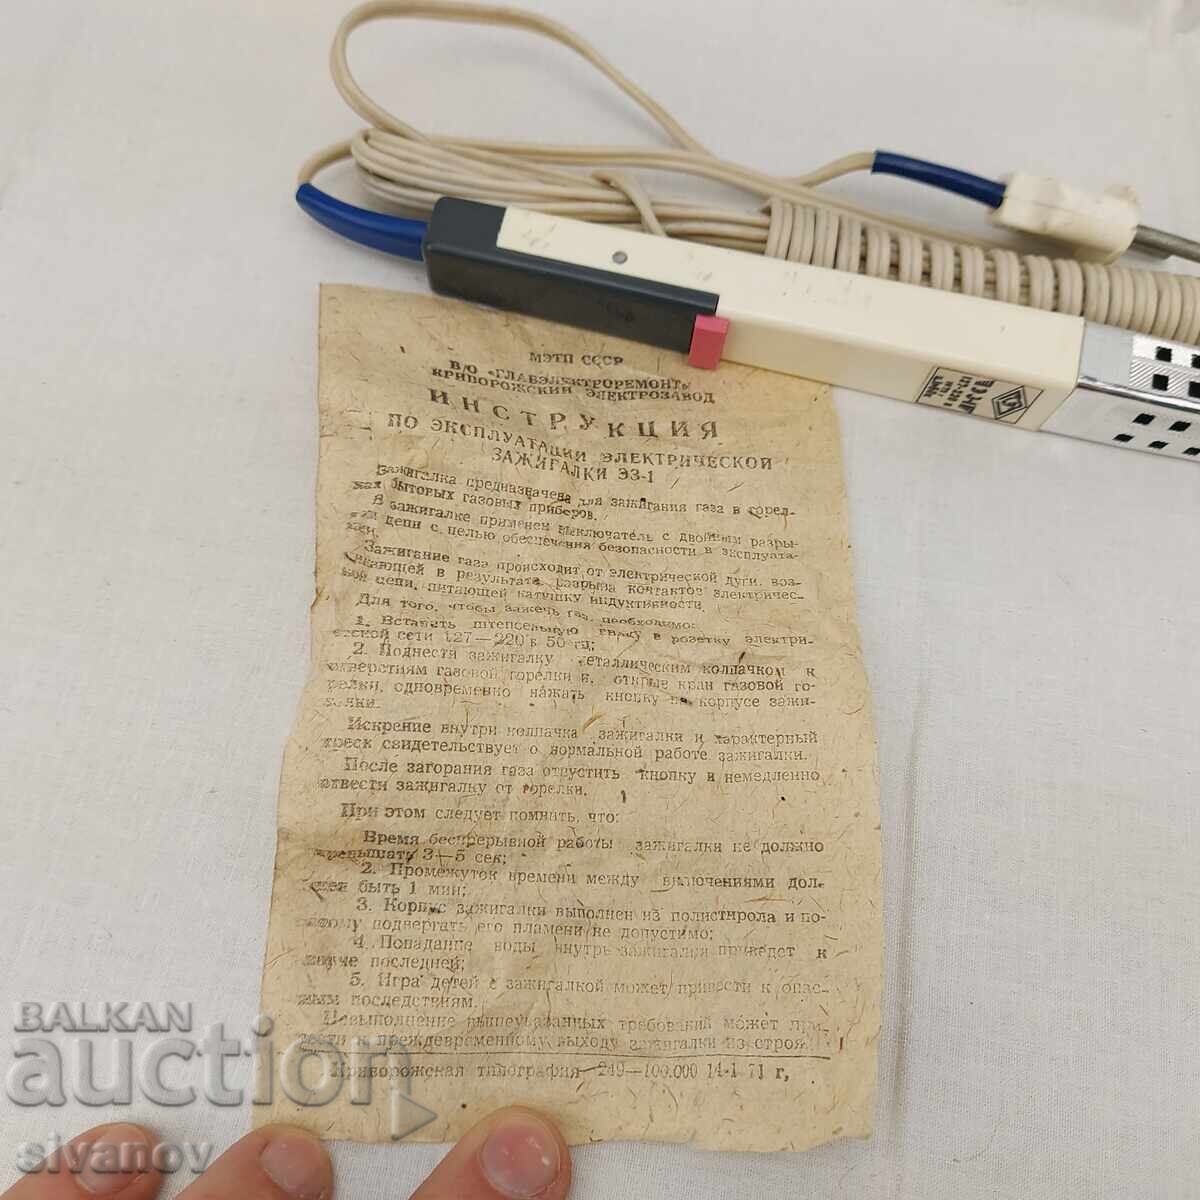 МЭТП СССР
В/О «ГЛАВЭЛЕКТРОРЕМОНТ»
КРИВОРОЖСКИЙ ЭЛЕКТРОЗАВОД
ИНСТРУКЦИЯ
ПО ЭКСПЛУАТАЦИИ ЭЛЕКТРИЧЕСКОЙ
ЗАЖИГАЛКИ ЭЗ-1
Зажигалка предназначена для зажигания газа в горел-
ках бытовых газовых приборов.
В зажигалке применен выключатель с двойным разры-
вом цепи с целью обеспечения безопасности в эксплуата-
ции.
Зажигание газа происходит от электрической дуги, воз-
никающей в результате разрыва контактов электричес-
кой цепи, питающей катушку индуктивности.
Для того, чтобы зажечь газ, необходимо:
1. Вставить штепсельную вилку в розетку электри-
ческой сети 127—220 в 50 гц;
2. Поднести зажигалку металлическим колпачком к
отверстиям газовой горелки и, открыв кран газовой го-
релки, одновременно нажать кнопку на корпусе зажи-
галки.
Искрение внутри колпачка зажигалки и характерный
треск свидетельствует о нормальной работе зажигалки.
После загорания газа отпустить кнопку и немедленно
отвести зажигалку от горелки.
При этом следует помнить, что:
Время беспрерывной работы зажигалки не должно
превышать 3—5 сек;
2. Промежуток времени между включениями дол-
жен быть 1 мин;
3. Корпус зажигалки выполнен из полистирола и по-
этому подвергать его пламени не допустимо;
4. Попадание воды внутрь зажигалки приведет к
порче последней;
5. Игра детей с зажигалкой может привести к опас-
ным последствиям.
Невыполнение вышеуказанных требований может при-
вести к преждевременному выходу зажигалки из строя.
Криворожская типография 249—100.000 14-1 71 г,
ЭЗ-1
127-220 В
BALKAN
auction
sivanov